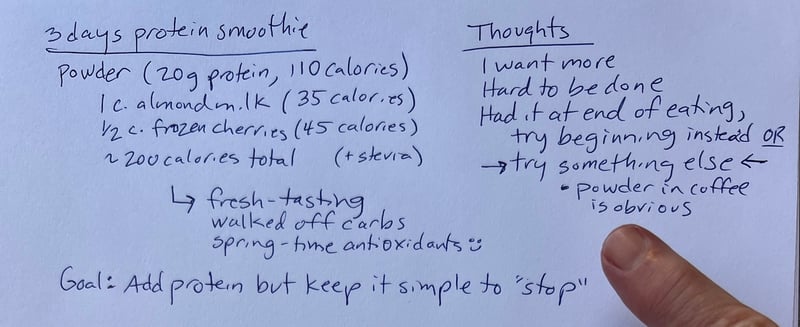 3 days protein smoothie
Powder (20g protein, 110 calories)
1 c. almond milk (35 calories)
1/2 c. frozen cherries (45 calories)
~ 200 calories total (+ stevia)
↳ fresh-tasting
walked off carbs
spring-time antioxidants ☺
Thoughts
I want more
Hard to be done
Had it at end of eating,
try beginning instead OR
→ try something else ←
• powder in coffee
is obvious
Goal: Add protein but keep it simple to "stop"